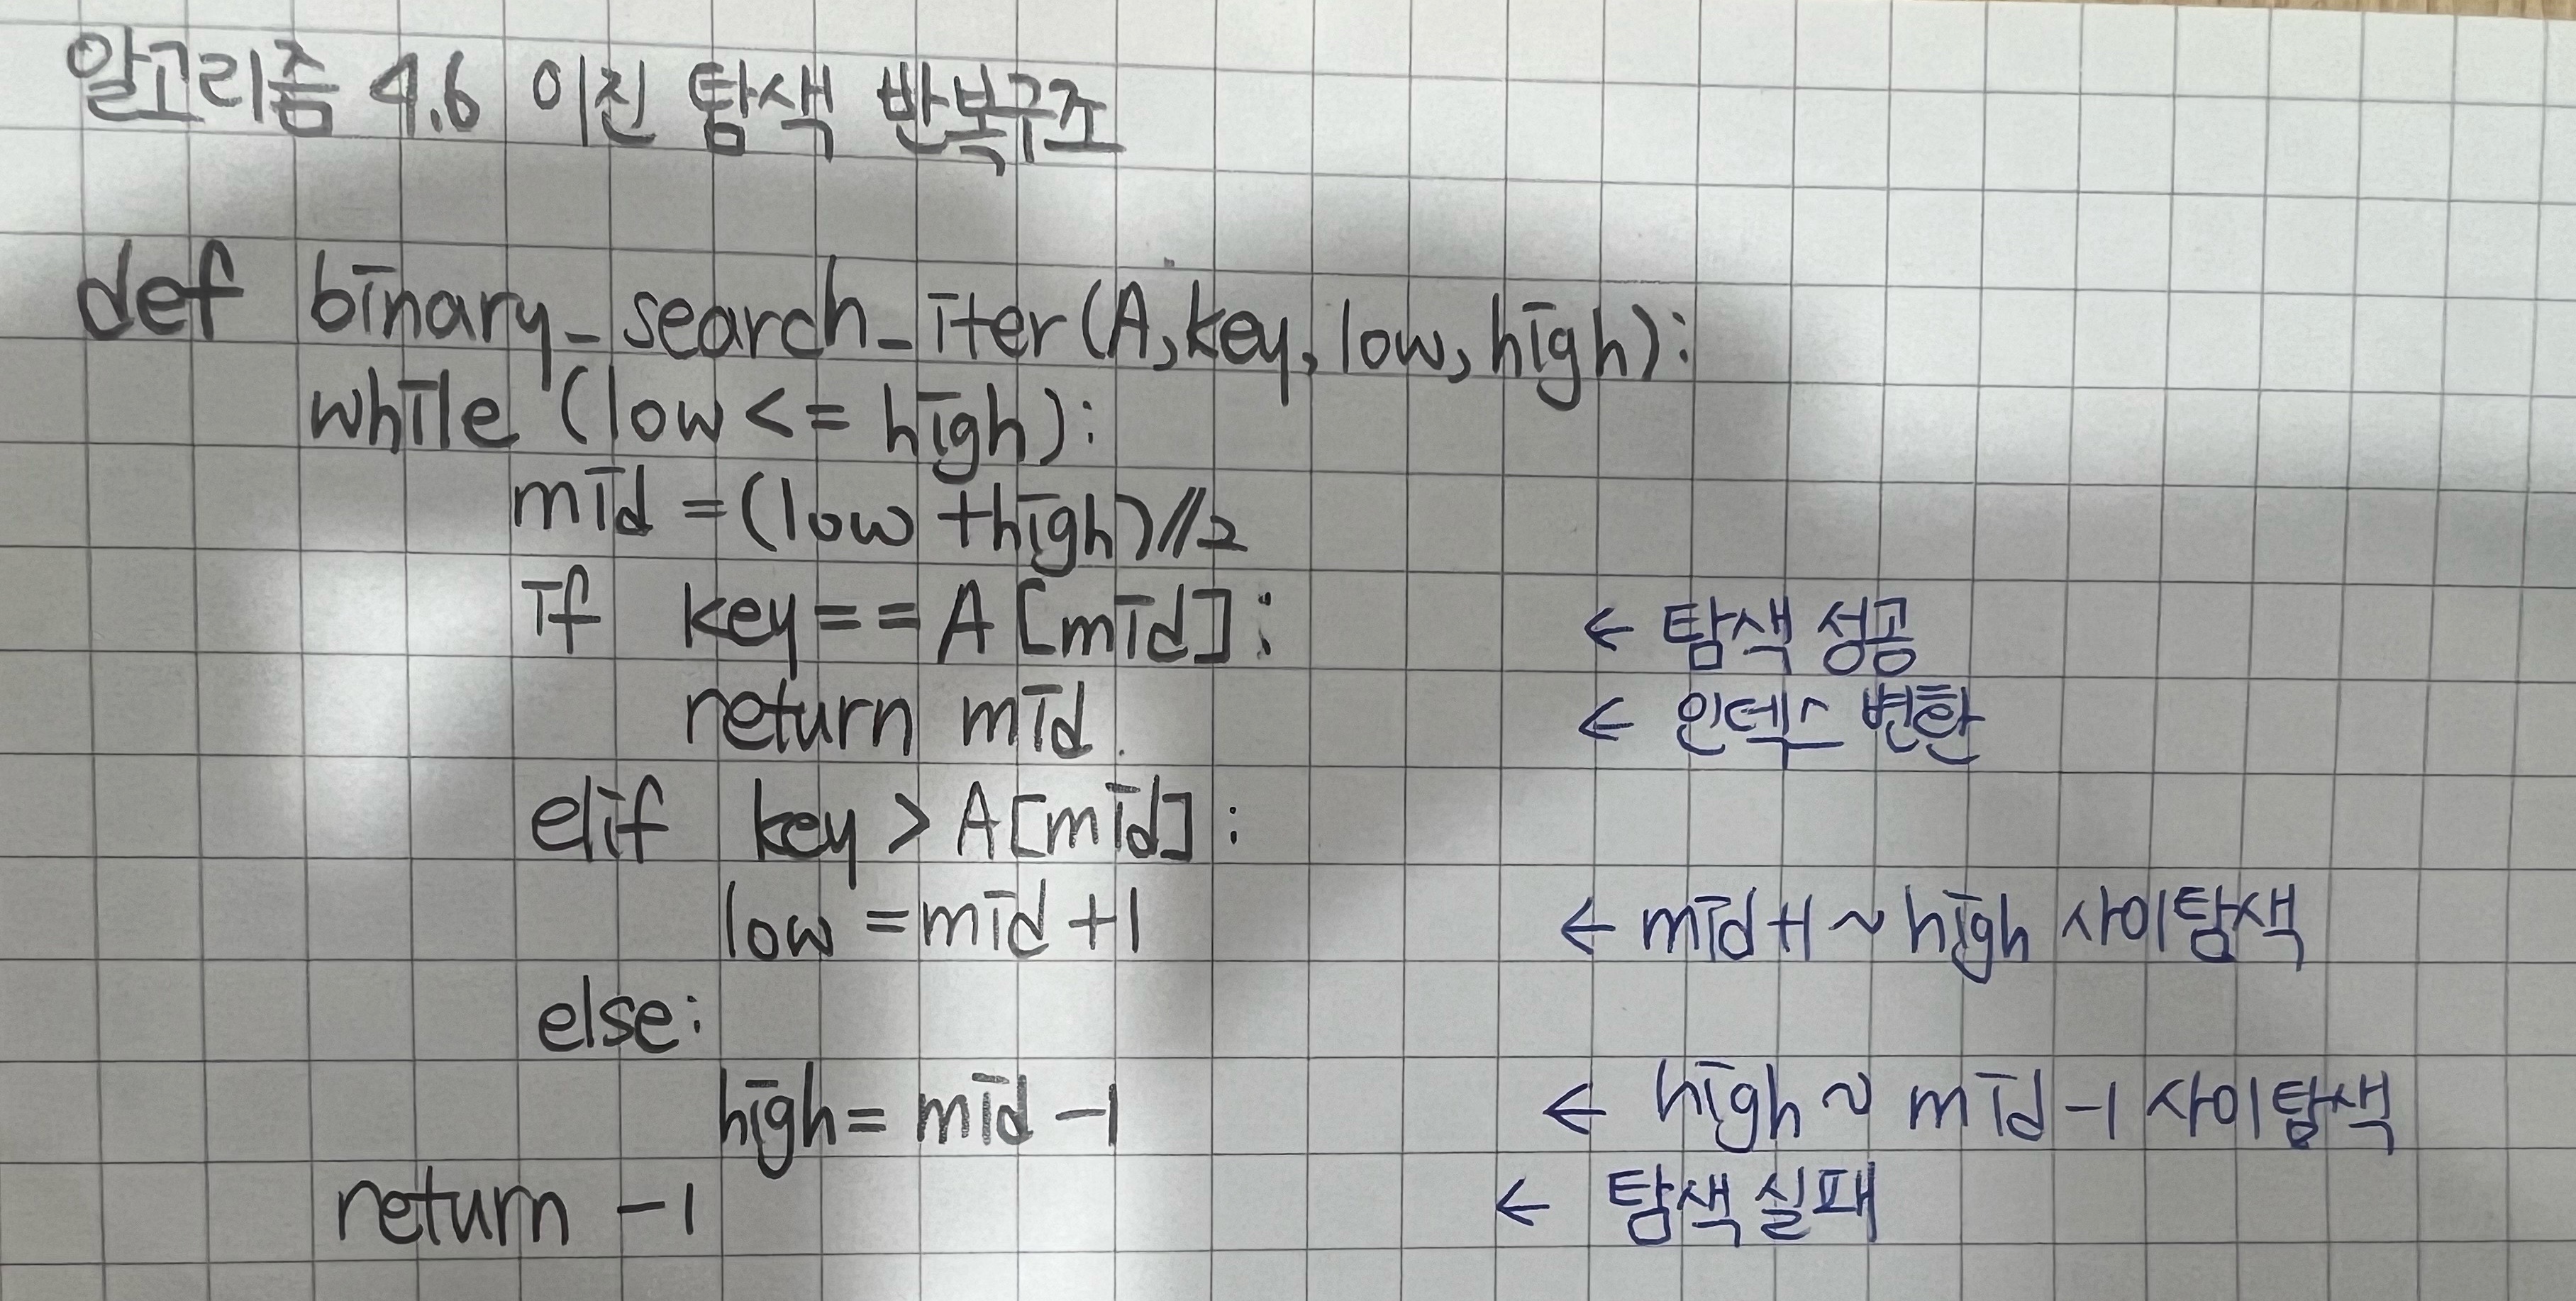 알고리즘 4.6 이진 탐색 반복구조
def binary_search_iter(A,key,low,high):
while (low <= high):
mid = (low +high)//2
if key==A[mid]: ← 탐색 성공
return mid ← 인덱스 변환
elif key > A[mid]:
low = mid +1 ← mid+1 ~ high 사이탐색
else:
high = mid -1 ← high ~ mid -1 사이탐색
return -1 ← 탐색 실패